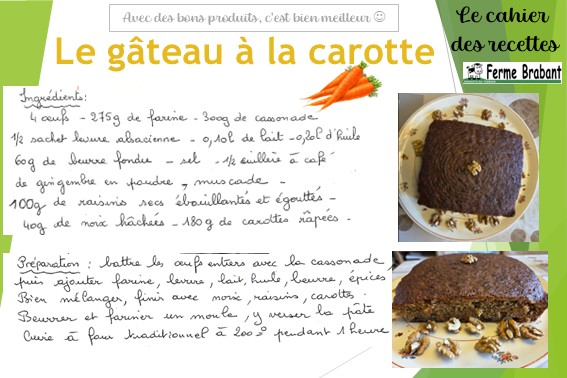 Avec des bons produits, c'est bien meilleur ☺
Le cahier
des recettes
Ferme Brabant
Le gâteau à la carotte
Ingrédients:
4 œufs - 275g de farine - 300g de cassonade
1/2 sachet levure alsacienne - 0,10l de lait - 0,20l d'huile
60g de beurre fondu - sel - 1/2 cuillère à café
de gingembre en poudre, muscade -
100g de raisins secs ébouillantés et égouttés -
40g de noix hâchées - 180g de carottes râpées -
Préparation : battre les œufs entiers avec la cassonade
puis ajouter farine, levure, lait, huile, beurre, épices
Bien mélanger, finir avec noix, raisins, carottes.
Beurrer et fariner un moule, y verser la pâte
Cuire à four traditionnel à 200° pendant 1 heure